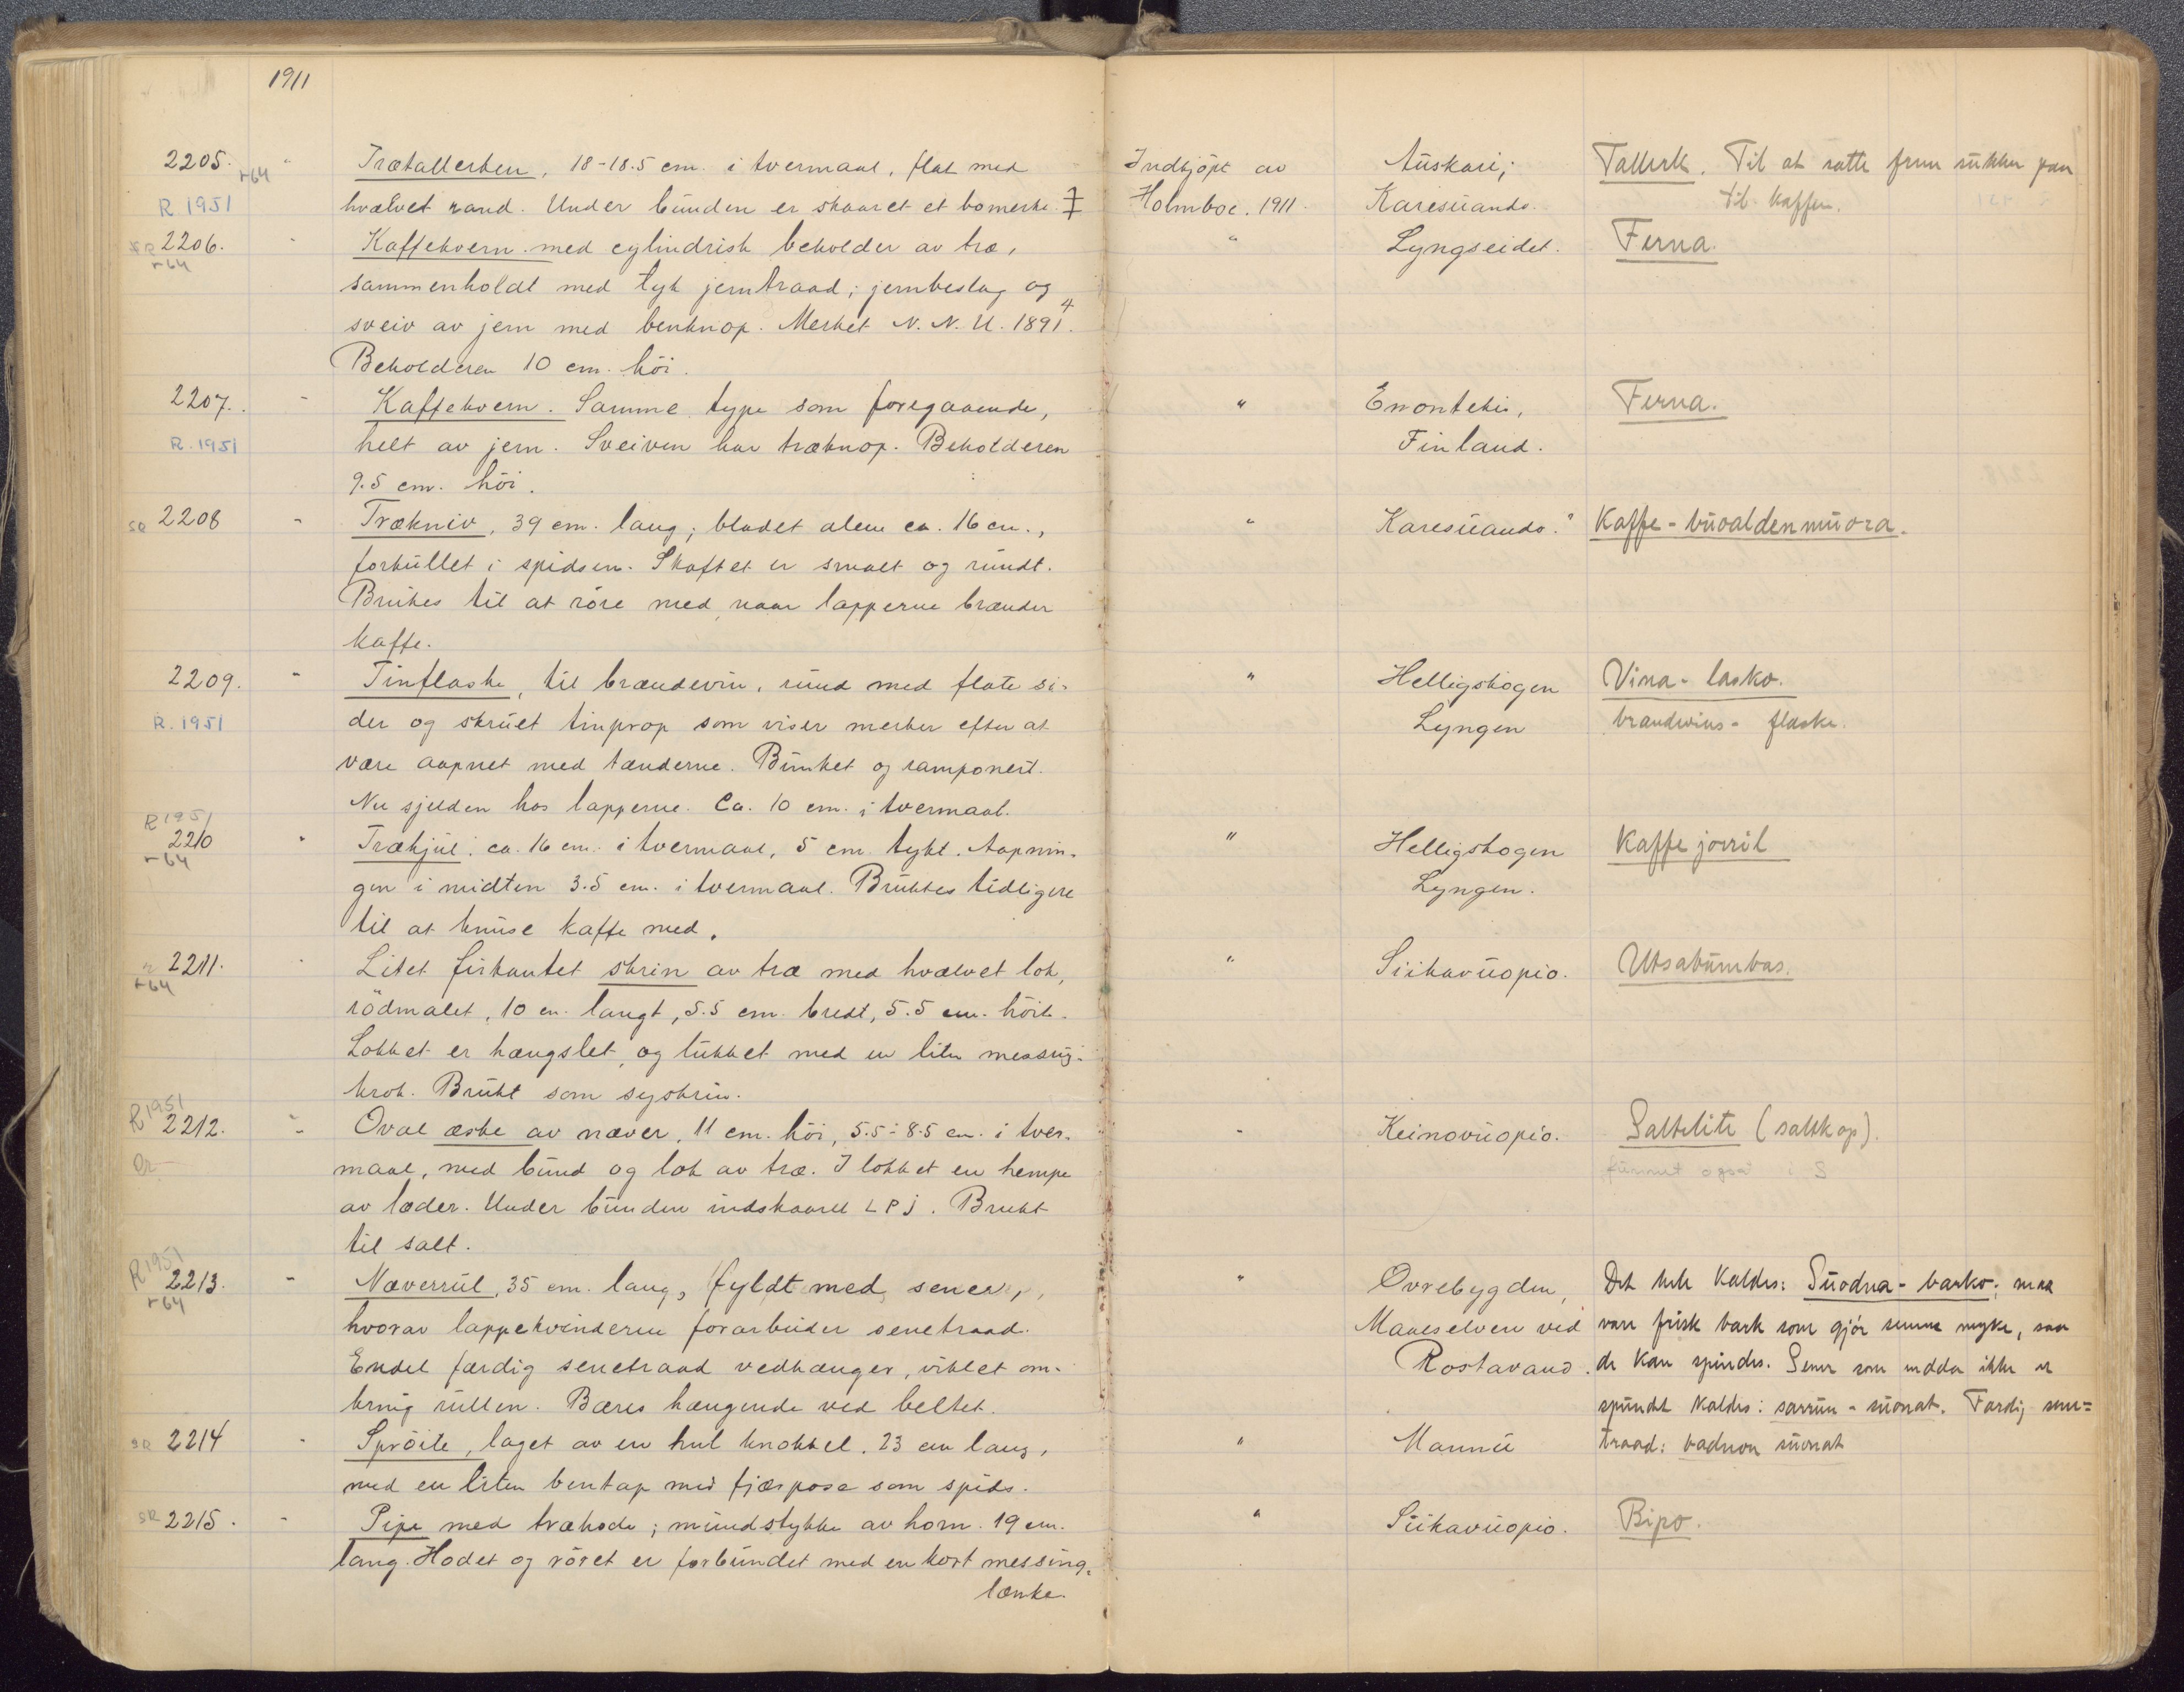 1911
2205. r64 " Trætallerken, 18-18.5 cm. i tvermaal, flat med Indkjöpt av Auskari; Tallerk. Til at sætte frem sukker paa
R 1951 hvælvet rand. Under bunden er skaaret et bomerke. Holmboe. 1911. Karesuando. til kaffen.
SR 2206. " Kaffekvern med cylindrisk beholder av træ, " Lyngseidet. Ferna.
r64 sammenholdt med tyk jerntraad; jernbeslag og
sveiv av jern med benknop. Merket N. N. U. 1891 4.
Beholderen 10 cm. höi.
2207. " Kaffekvern. Samme type som foregaaende, " Enontekis, Ferna.
R. 1951 helt av jern. Sveiven har træknop. Beholderen Finland.
9.5 cm. höi.
SR 2208 " Trækniv, 39 cm. lang; bladet alene ca. 16 cm., " Karesuando. Kaffe-buoaldenmuora.
forkullet i spidsen. Skaftet er smalt og rundt.
Brukes til at röre med, naar lapperne brænder
kaffe.
2209. " Tinflaske, til brændevin, rund med flate si- " Helligskogen Vina-lasko.
R. 1951 der og skruet tinprop som viser merker efter at Lyngen brændvins-flaske.
være aapnet med tænderne. Bunket og ramponert.
Nu sjelden hos lapperne. Ca. 10 cm. i tvermaal.
R 1951
2210 " Træhjul, ca. 16 cm. i tvermaal, 5 cm. tykt. Aapnin- " Helligskogen Kaffe jorril
r64 gen i midten 3.5 cm. i tvermaal. Bruktes tidligere Lyngen.
til at knuse kaffe med.
2211. " Litet firkantet skrin av træ med hvælvet lok, " Siikavuopio. Utsabumbas.
r64 rödmalet, 10 cm. langt, 5.5 cm. bredt, 5.5 cm. höit.
Lokket er hængslet, og lukket med en liten messing-
krok. Brukt som syskrin.
R 1951
2212. " Oval æske av næver, 11 cm. höi, 5.5-8.5 cm. i tver- " Keinovuopio. Saltelite (saltkop).
maal, med bund og lok av træ. I lokket en hempe funnet også i S
av læder. Under bunden indskaaret LPJ. Brukt
til salt.
R 1951
2213. " Næverrul, 35 cm. lang, fyldt med sener, " Övrebygden, Det hele kaldes: Suodna-barko; maa
r64 hvorav lappekvinderne forarbeider senetraad. Maaselven ved være frisk bark som gjör senene myke, saa
Endel færdig senetraad vedhænger, viklet om- Rostavand. de kan spindes. Sener som endda ikke er
kring rullen. Bæres hængende ved beltet. spundt kaldes: sarrum-suonat. Færdig sene-
SR 2214 " Spröite, laget av en hul knokkel. 23 cm lang, " Maunu traad: badnon suonat
med en liten bentap med fjærpose som spids.
SR 2215. " Pipe med træhode; mundstykke av horn. 19 cm. " Siikavuopio. Bipo.
lang. Hodet og röret er forbundet med en kort messing-
lænke.